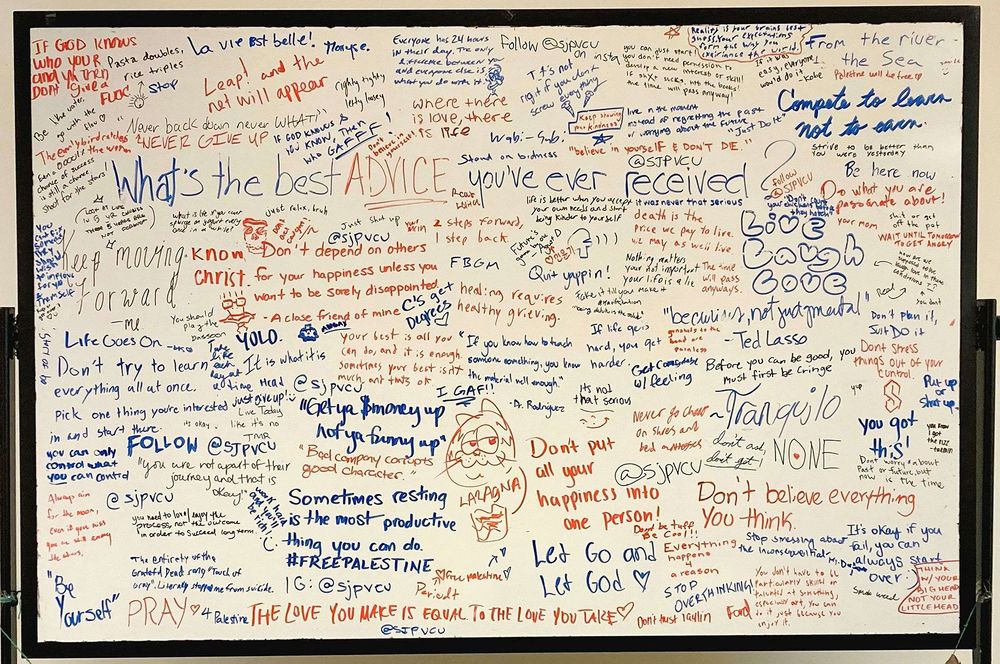 IF GOD KNOWS
WHO YOUR
Pasta doubles,
rice triples
Stop
La vie est belle!
Leap! and the
net will appear
righty tighty
lefty loosey
Everyone has 24 hours
in their day. The only
difference between you
and everyone else is
what you do with it
Follow @sjpvcu
on insta
you can just start!
you don't need permission to
develop a new interest or skill!
time will pass anyway!
Reality is your brains best
guess. Your expectations
form the way you
experience the world.
If it was
easy, everyone
would do it
- Kobe
From the river
to the Sea
Palestine will be free
Be like water,
go with the
flow
The early bird catches
the worm
Never back down never WHAT!
NEVER GIVE UP
IF GOD KNOWS &
YOU KNOW, Then
who GAFF!
where there
is love, there
is life
Wabi-Sabi
Stand on bidness
Keep showing
your kindness
live in the moment
instead of regretting the past
or worrying about the future
"Just Do It"
"believe in yourself & DON'T DIE."
@SJPVCU
Compete to learn
not to earn.
Strive to be better than
you were yesterday
Be here now
What's the best ADVICE you've ever received?
Follow
@SJPVCU
Do what you are
passionate about!
your mom
shit or get
off the pot
WAIT UNTIL TOMORROW
TO GET ANGRY
Keep moving
forward
-me
Just relax, bruh
Know
Christ
Just shut up
@sjpvcu
Don't depend on others
for your happiness unless you
want to be sorely disappointed.
- A close friend of mine
win 2 steps forward,
1 step back
FBGM
life is better when you accept
your own needs and start
being kinder to yourself
it was never that serious
death is the
price we pay to live.
we may as well live.
Quit yappin!
Nothing matters
your not important
your life is a lie
The time
will pass
anyways.
LIVE
Laugh
Love
Don't count
your chickens before
they hatch
C's get
Degrees
healing requires
healthy grieving.
fake it till you make it
"be curious, not judgmental"
-Ted Lasso
Read
Don't plan it,
Just DO it
You should
play the
bassoon
YOLO.
Life Goes On
Don't try to learn
everything all at once.
Pick one thing you're interested
in and start there.
Take
life
each
day at
a time
It is what it is
Head @sjpvcu
just give up!
Live Today
like it's no
TMR
it's okay.
your best is all you
can do, and it is enough.
sometimes your best isn't
much, and that's ok
"If you know how to teach
someone something, you know
the material well enough."
-A. Rodriguez
If life gets
hard, you get
harder.
I GAF!!
Get comfortable
w/ feeling
Before you can be good, you
must first be cringe
Don't stress
things out of your
control
Put up
or
Shut up.
you can only
control what
you can control
FOLLOW @SJPVCU
"you are not apart of their
journey and that is
okay!"
"Get ya $money up
not ya funny up"
"Bad company corrupts
good character."
LASAGNA
It's not
that serious
Never go cheap
on shoes and
bed
~Tranquilo
don't ask,
don't get
NONE
you got
this!
Dont worry about
Past or future, but
now is the time.
Always aim
for the moon,
even if you miss
you're still among
the stars.
@sjpvcu
you need to love/enjoy the
process, not the outcome
in order to succeed long term.
work hard
and you'll
be rich!
Sometimes resting
is the most productive
thing you can do.
#FREEPALESTINE
Don't put
all your
happiness into
one person!
@sjpvcu
Don't believe everything
You think.
Dont be tuff
Be Cool!!
Everything
happens
4
a reason
Stop stressing about
the inconsequential
It's okay if you
fail, you can
always start
over.
"Be
Yourself"
The entirety of the
Grateful Dead song "Touch of
Gray". Literally stopped me from suicide.
IG: @sjpvcu
Free Palestine
Let Go and
Let God
STOP
OVERSHINKING!
You don't have to be
particularly skillful or
talented at something,
especially art, you can
do it just because you
enjoy it.
Smoke weed
THINK
W/ YOUR
BIG HEAD
NOT YOUR
LITTLE HEAD
PRAY
4 Palestine
THE LOVE YOU MAKE IS EQUAL TO THE LOVE YOU TAKE
Don't trust
Ford
@SJPVCU